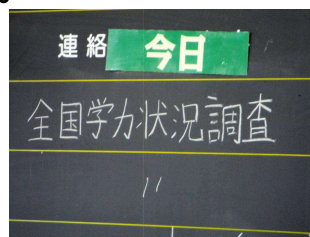 連絡 今日
全国学力状況調査
〃